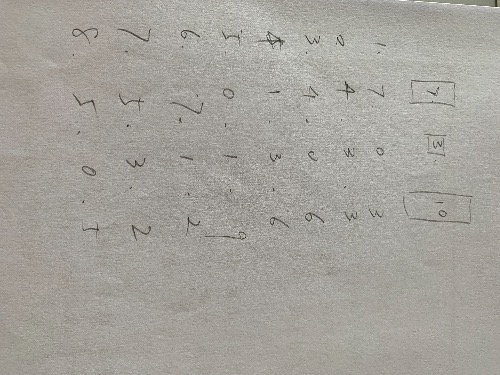 7. 3. 10
1. 7 0 3
2 4. 3. 3
3. 4. 0 6
4 1. 3. 6
5 0. 1. 9
6. 7. 1. 2
7. 5. 3. 2
8. 5. 0. 5